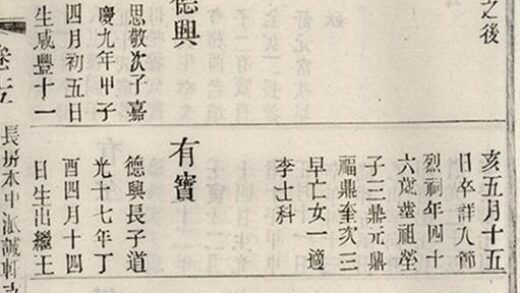 之後
德興
思敬次子嘉
慶九年甲子
四月初五日
生咸豐十一
亥五月十五
日卒詳入節
烈祠年四十
六歲塟祖塋
子三鼎元鼎
福鼎奎次三
早亡女一適
李士科
有寶
德興長子道
光十七年丁
酉四月十四
日生出繼王
卷
長房木中派誠軒支